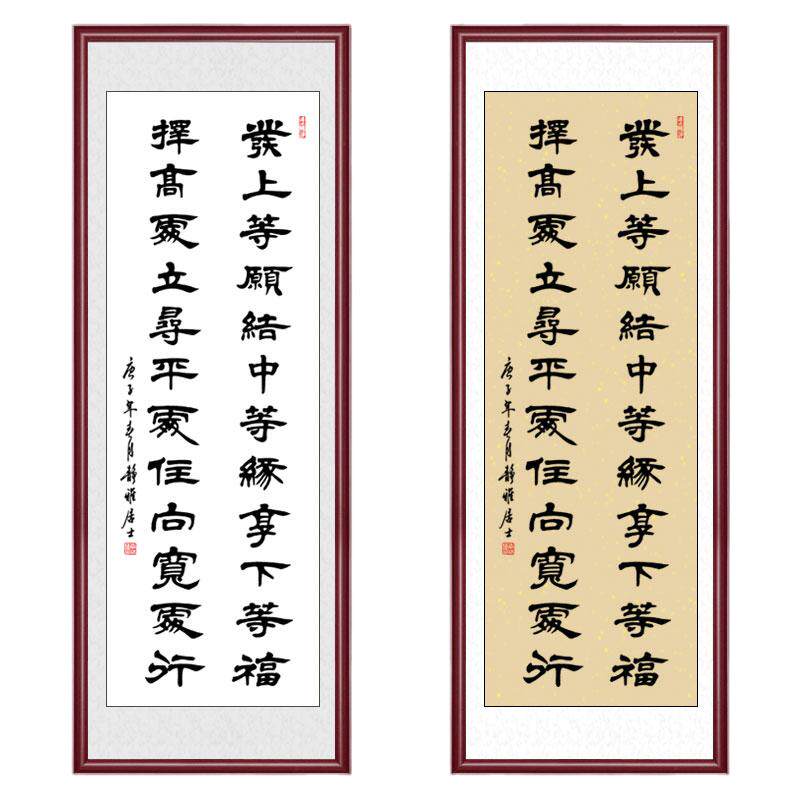 發上等願結中等緣享下等福
擇高處立尋平處住向寬處行
庚子年春月靜雅居士
發上等願結中等緣享下等福
擇高處立尋平處住向寬處行
庚子年春月靜雅居士